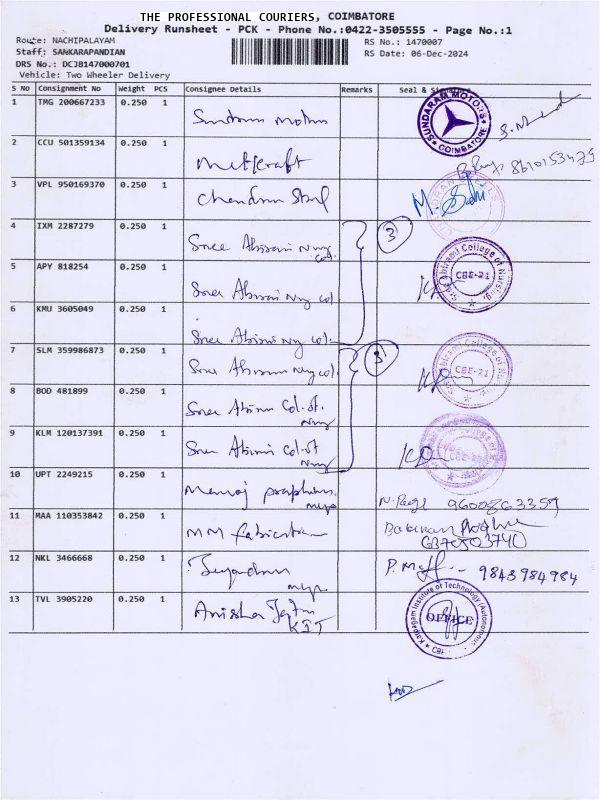 THE PROFESSIONAL COURIERS, COIMBATORE
Delivery Runsheet - PCK - Phone No.:0422-3505555 - Page No.:1
Route: NACHIPALAYAM
RS No.: 1470007
Staff: SANKARAPANDIAN
RS Date: 06-Dec-2024
DRS No.: DCJB147000701
Vehicle: Two Wheeler Delivery
S No Consignment No Weight PCS Consignee Details Remarks Seal &
1 TMG 200667233 0.250 1 Sundaram Motors
SUNDARAM MOTORS COIMBATORE
2 CCU 501359134 0.250 1 Metcraft 8610153475
3 VPL 950169370 0.250 1 Chandran Steel
4 IXM 2287279 0.250 1 Sree Abirami Nurs col. 3
5 APY 818254 0.250 1 Sree Abirami Nrg col
College of Nursing CBE-21
6 KMU 3605049 0.250 1 Sree Abirami Nrg col.
7 SLM 359986873 0.250 1 Sree Abirami Nrg col. 3
College of CBE-21
8 BOD 481899 0.250 1 Sree Abirami Col. of. Nrsg
9 KLM 120137391 0.250 1 Sree Abirami Col. of Nrsg
10 UPT 2249215 0.250 1 9600863359
11 MAA 110353842 0.250 1 MM Fabrication
12 NKL 3466668 0.250 1 9843984984
13 TVL 3905220 0.250 1 KIT
Karpagam Institute of Technology (Autonomous)
OFFICE